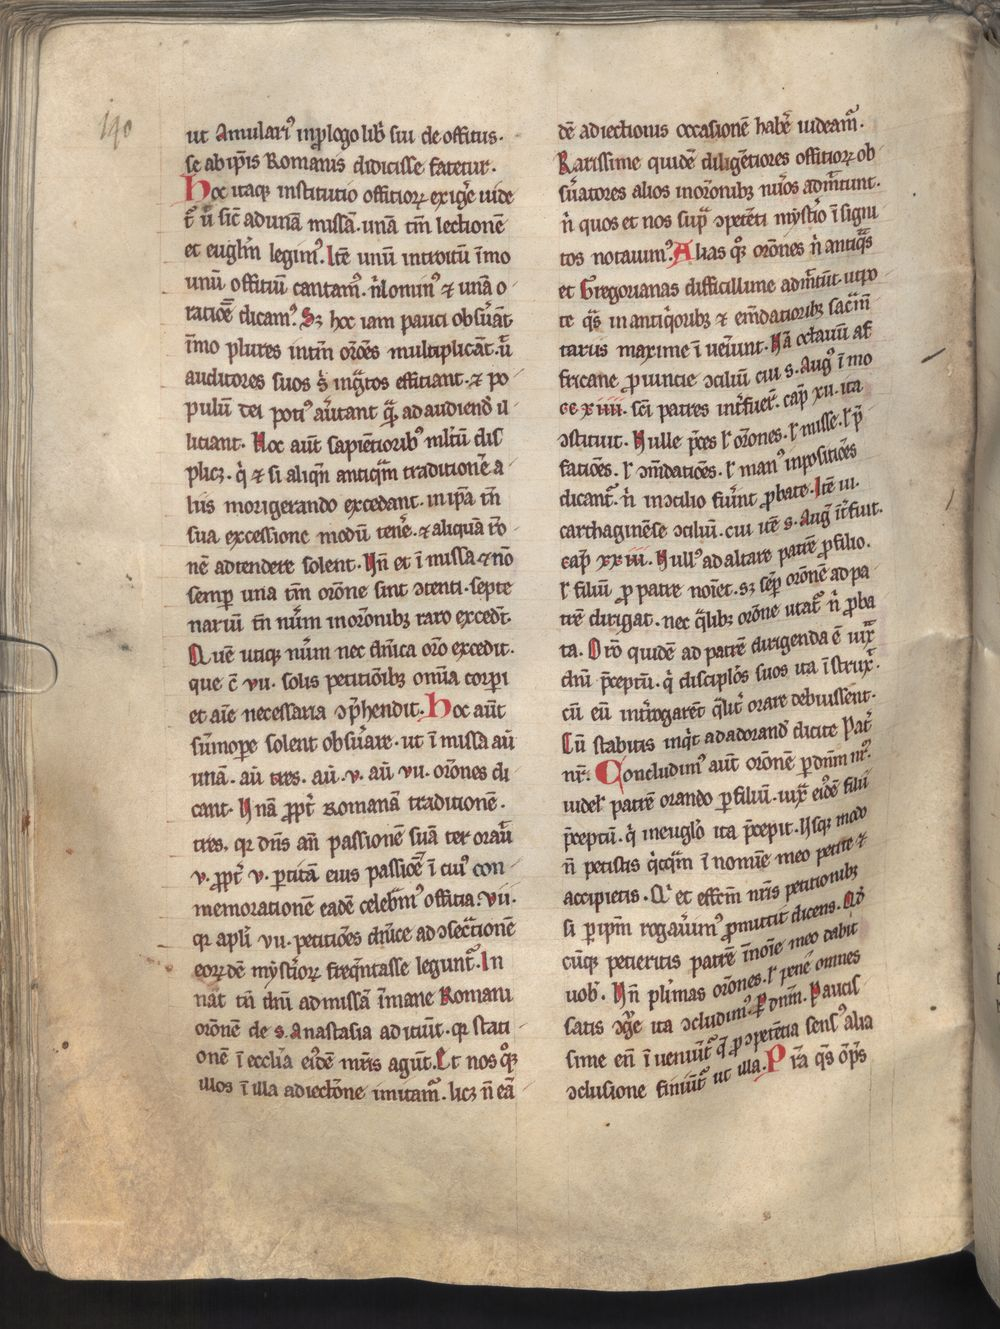 190
ut Amulari᷒ in ꝓlogo libͬ sui de offitiis.
se ab ip̄is Romanis didicisse fatetur.
Hoc itaqꝫ institutio offitioꝝ exig̾e uide
t᷑ ut̾ sic̄ ad unā missā. unā tm̄ lectionē
et eug̾ln̄ legim᷒. Itē unū introitū īmo
unū offitiū cantam᷒. n̾lomin᷒ ⁊ unā o
ratiōē dicam᷒. Sꝫ hoc iam pauci obs̾uāt
īmo plures int̾m or̄ōes multiplicāt. ut̾
auditores suos s᷒ ing̾tos effitiant. ⁊ po
pulum dei poti᷒ au̾tant qͣ̄. ad audiend̾ il
litiant. Hoc aūt sapiētiorib᷒ ml̾tū dis
plicꝫ. qͥ ⁊ si aliqn̄ antiqͣm traditionē a
liis morigerando excedant. in ip̄a tn̄
sua excessione modū tenēꝛe. ⁊ aliquā rͣo
nē adtendere solent. Hn̄ et ī missa ⁊ nō
semꝑ una tm̄ or̄one sint ꝯtenti. septe
nariū tn̄ nūm in or̄onibꝫ raro excedūt.
Quē utiqꝫ nūm nec dn̄ica or̄o excedit.
que ē vii. solis petitiōibꝫ om̄ia corꝑi
et aīe necessaria ꝯp̄hendit. Hoc aūt
sūmope solent obs̾uare. ut ī missa aū
unā. aū tres. aū. v. aū vii. or̄ones di
cant. Unā ꝓpt̾ Romanā traditionē.
tres. qꝛ dn̄s an̄ passionē suā ter orau̾
v. ꝓpt̾ v. ꝑtitā eius passiōē ī cui᷒ con
memorationē eadē celebͬm᷒ offitia. vii.
qꝛ apl̾i vii. petitiōes dn̄ice ad ꝯsecͣtionē
eorꝝdē myst̾ioꝝ freqn̄tasse legunt᷑. In
nat̄ tn̄ dn̄i ad missā ī mane Romani
or̄onē de s. Anastasia adiciūt. qꝛ stati
onē ī eccl̾ia ei᷒dē mr̄is agūt. Et nos qͦqꝫ
illos ī illa adiectiōne imitam᷑. licꝫ n̄ eā
dē adiectionis occasionē habē̾ uideam᷑.
Rarissime quidē diligētiores offitioꝝ ob
s̾uatores alios in or̄onibꝫ nūos admͭtunt.
n̾ quos et nos supͣ ꝯpetēti myst̾io īsigni
tos notauim᷒. Alias qͦqꝫ or̄ones n̾ antiqͣs
et Gregorianas difficillime admͭtūt. utpo
te qͣs in antiqͥoribꝫ ⁊ em̄datioribꝫ sac̾mn̄
tariis maxime ī ueniunt. Nā octauū af
fricane ꝓuincie ꝯciliū cui s. Aug᷒ ī mo
cc xiiii. sc̄i patres int̾fuer̄. cap̄ xii. ita
ꝯstituit. Nulle p̄ces l̾ or̄ones. l̾ misse. l̾ p̄
fatiōes. l̾ ꝯm̄datiōes. l̾ man᷒ inpositiōes
dicant᷑. n̾ in ꝯcilio fuer̄int ꝓbate. Itē iii.
carthaginēse ꝯciliū. cui itē s. Aug᷒ īt̾fuit.
cap̄ xxiii. Null᷒ ad altare patrē ꝓ filio.
l̾ filiū ꝓ patre noīet. sꝫ semꝑ or̄onē ad pa
trē dirigat. nec qͣlibꝫ or̄one utat᷑ n̾ ꝓba
ta. Or̄o quidē ad patrē dirigenda ē iux̄
dn̄i p̄ceptū. qͥ disciplos suos ita īstrux̾.
cū eū int̾rogarēt qͣlit̾ orare debuissent.
Cū stabitis inqͥt ad adorand̾ dicite Pat̾
nr̄. Concludim᷒ aūt or̄onē ꝑ dn̄m nr̄m.
uidelꝫ patrē orando ꝑ filiū. iux̄ ei᷒dē filii
p̄ceptū. qͥ in eug̾lo ita p̄cepit. Usqꝫ modo
n̄ petistis qͥcqͣm ī nomine meo petite ⁊
accipietis. Qͥ et effc̄m nr̄is petitionibꝫ
si ꝑ ip̄m rogau̾im᷒ ꝓmittit dicens. Qd̾
cūqꝫ petieritis patrē ī noīe meo dabit
uob̾. Hn̄ pl̾imas or̄ones. l̾ pene omnes
satis ꝯg̾e ita ꝯcludim᷒. ꝑ dn̄m. Paucis
sime en̄ ī ueniūt᷑ q̄ ꝓ ꝯpetētia sens᷒ alia
ꝯclusione finiūt᷑ ut illa. Pr̄a qͣs ōp̄s